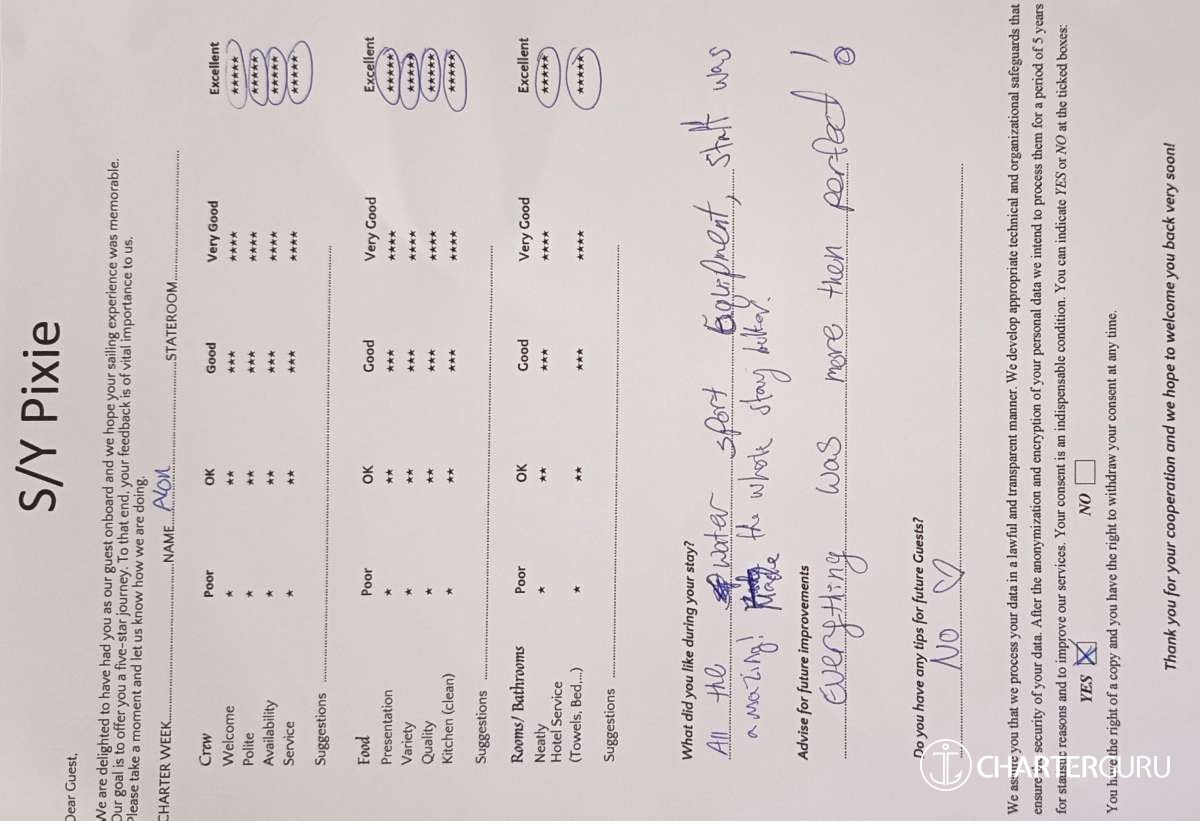 S/Y Pixie
Dear Guest,
We are delighted to have had you as our guest onboard and we hope your sailing experience was memorable.
Our goal is to offer you a five-star journey. To that end, your feedback is of vital importance to us.
Please take a moment and let us know how we are doing.
CHARTER WEEK....................NAME Alon....................STATEROOM....................
Crew Poor OK Good Very Good Excellent
Welcome ★ ★★ ★★★ ★★★★ ★★★★★
Polite ★ ★★ ★★★ ★★★★ ★★★★★
Availability ★ ★★ ★★★ ★★★★ ★★★★★
Service ★ ★★ ★★★ ★★★★ ★★★★★
Suggestions ....................
Food Poor OK Good Very Good Excellent
Presentation ★ ★★ ★★★ ★★★★ ★★★★★
Variety ★ ★★ ★★★ ★★★★ ★★★★★
Quality ★ ★★ ★★★ ★★★★ ★★★★★
Kitchen (clean) ★ ★★ ★★★ ★★★★ ★★★★★
Suggestions ....................
Rooms/ Bathrooms Poor OK Good Very Good Excellent
Neatly ★ ★★ ★★★ ★★★★ ★★★★★
Hotel Service
(Towels, Bed...) ★ ★★ ★★★ ★★★★ ★★★★★
Suggestions ....................
What did you like during your stay?
All the water sport Equipment, staff was
amazing! Made the whole stay butter.
Advise for future improvements
Everything was more then perfect!
Do you have any tips for future Guests?
NO ♡
We assure you that we process your data in a lawful and transparent manner. We develop appropriate technical and organizational safeguards that
ensure the security of your data. After the anonymization and encryption of your personal data we intend to process them for a period of 5 years
for statistic reasons and to improve our services. Your consent is an indispensable condition. You can indicate YES or NO at the ticked boxes:
YES ☒ NO ☐
You have the right of a copy and you have the right to withdraw your consent at any time.
Thank you for your cooperation and we hope to welcome you back very soon!
CHARTERGURU